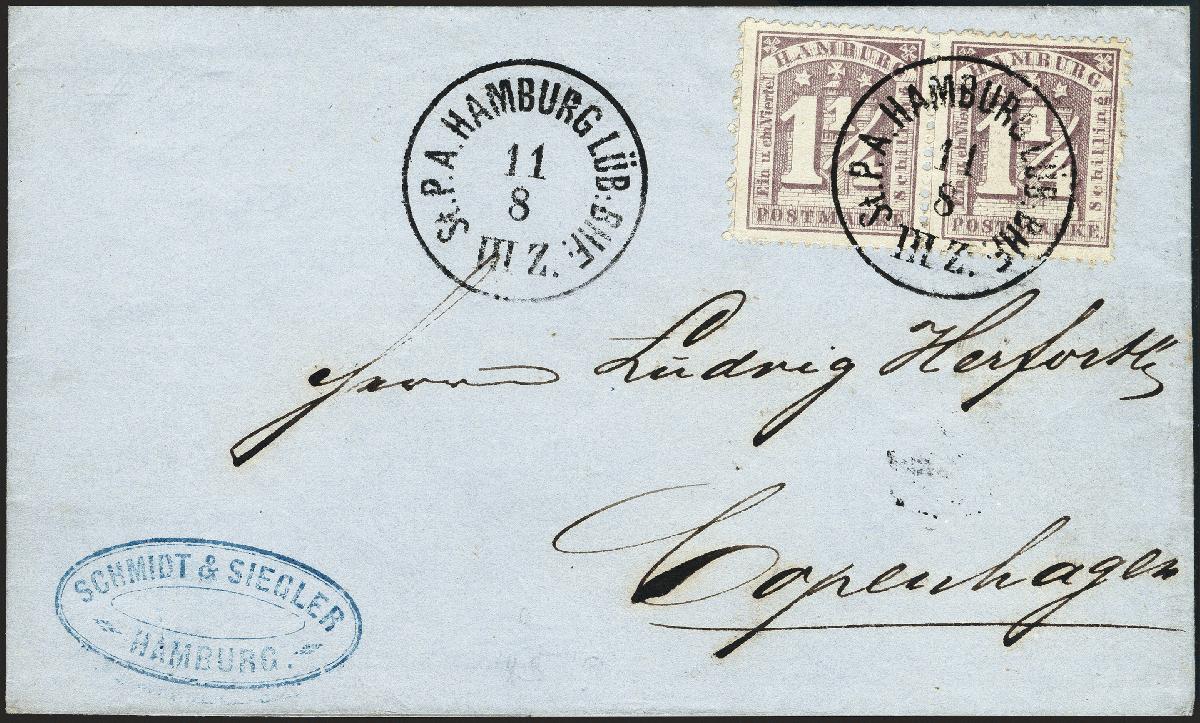 St. P. A. HAMBURG LÜB. BHF.
11
8
III Z.
HAMBURG
Ein u. ein Viertel
1¼
Schilling
POSTMARKE
HAMBURG
Ein u. ein Viertel
1¼
Schilling
POSTMARKE
St. P. A. HAMBURG LÜB. BHF.
11
8
III Z.
Herrn Ludvig Herforth
Copenhagen
SCHMIDT & SIEGLER
HAMBURG.